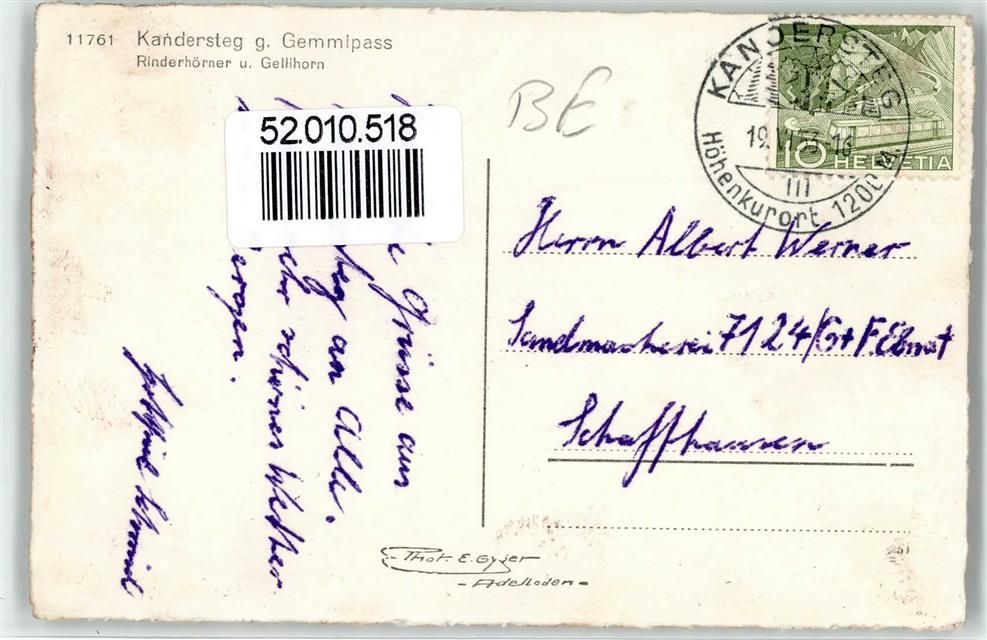 11761 Kandersteg g. Gemmipass
Rinderhörner u. Gellihorn
52.010.518
BE
KANDERSTEG
19.VI.53-16
Höhenkurort 1200 M
10 HELVETIA
Herrn Albert Werner
Sandmacherei 7124/G+F Ebnat
Schaffhausen
Grüsse aus
an Alle.
schönes Wetter
Schmid
Phot. E. Gyger
- Adelboden -